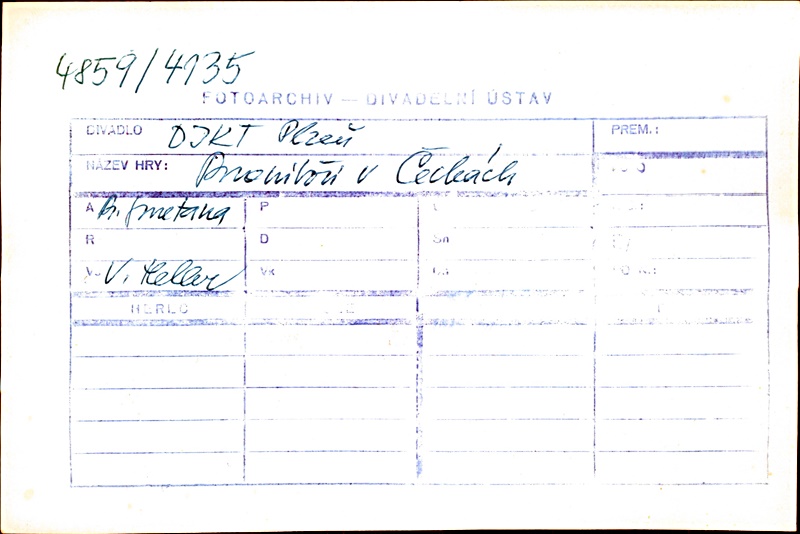 4859/4135
FOTOARCHIV — DIVADELNÍ ÚSTAV
DIVADLO DJKT Plzeň PREM.:
NÁZEV HRY: Braniboři v Čechách
A B. Smetana P
R D Sn
V. Heller Vk
HEREC